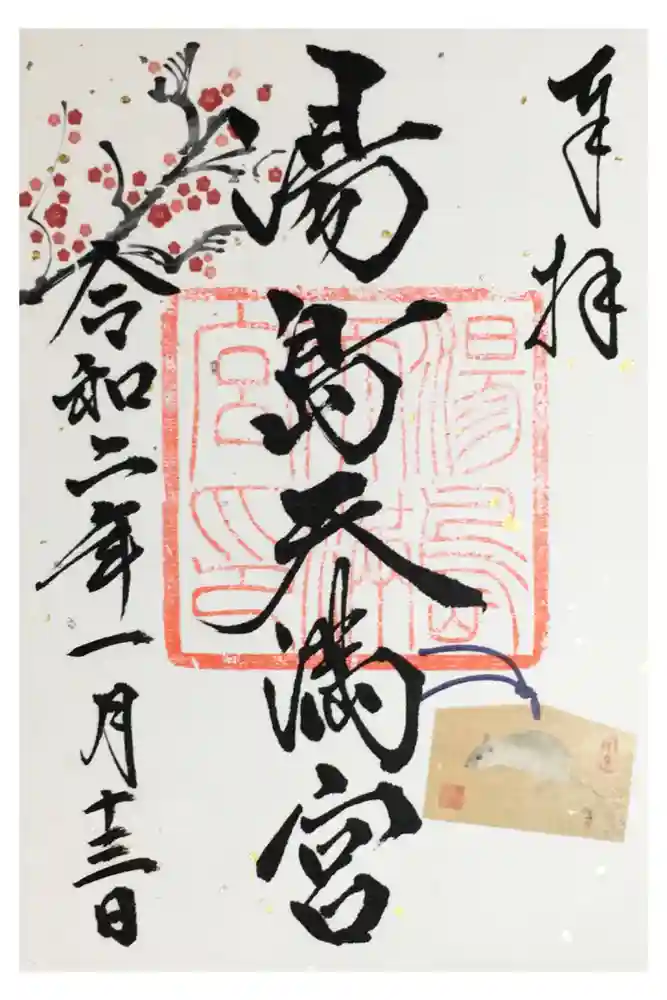 奉拝
湯島天満宮
令和二年一月十三日
湯島天満宮印
開運